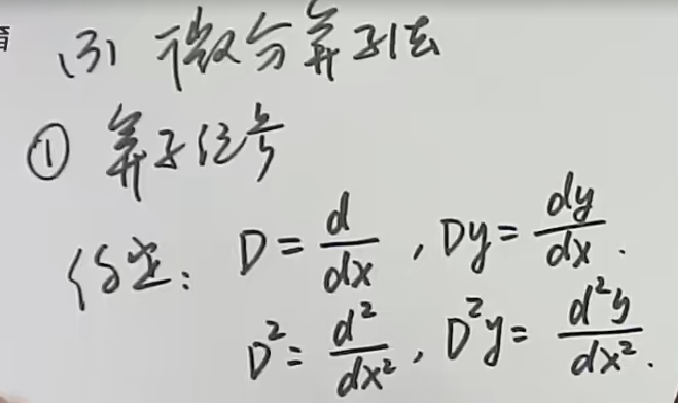 (3) 微分算子法
① 算子记号
约定: D = \frac{d}{dx}, Dy = \frac{dy}{dx}.
D² = \frac{d²}{dx²}, D²y = \frac{d²y}{dx²}.